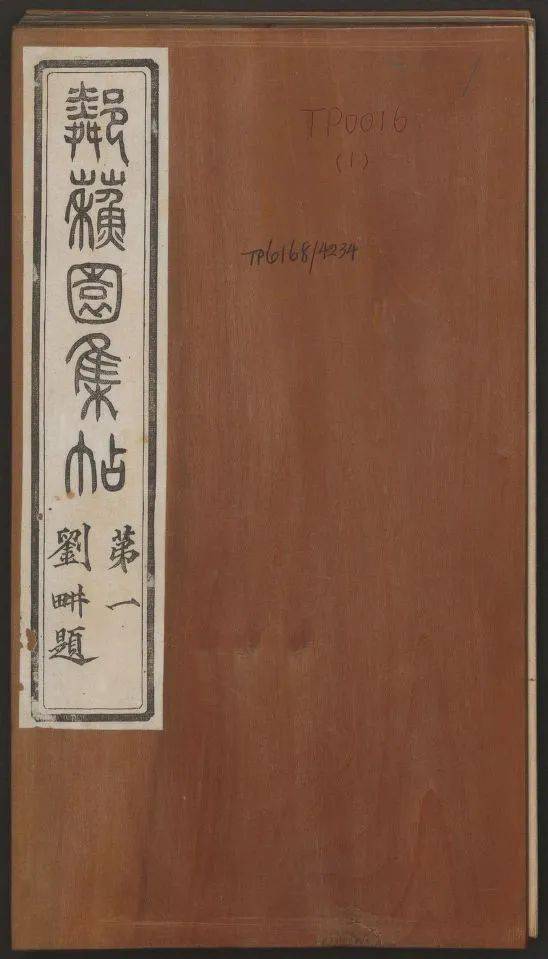 鄰蘓園集帖
第一
劉畊題
1
TP0016
(1)
TP6168/4234